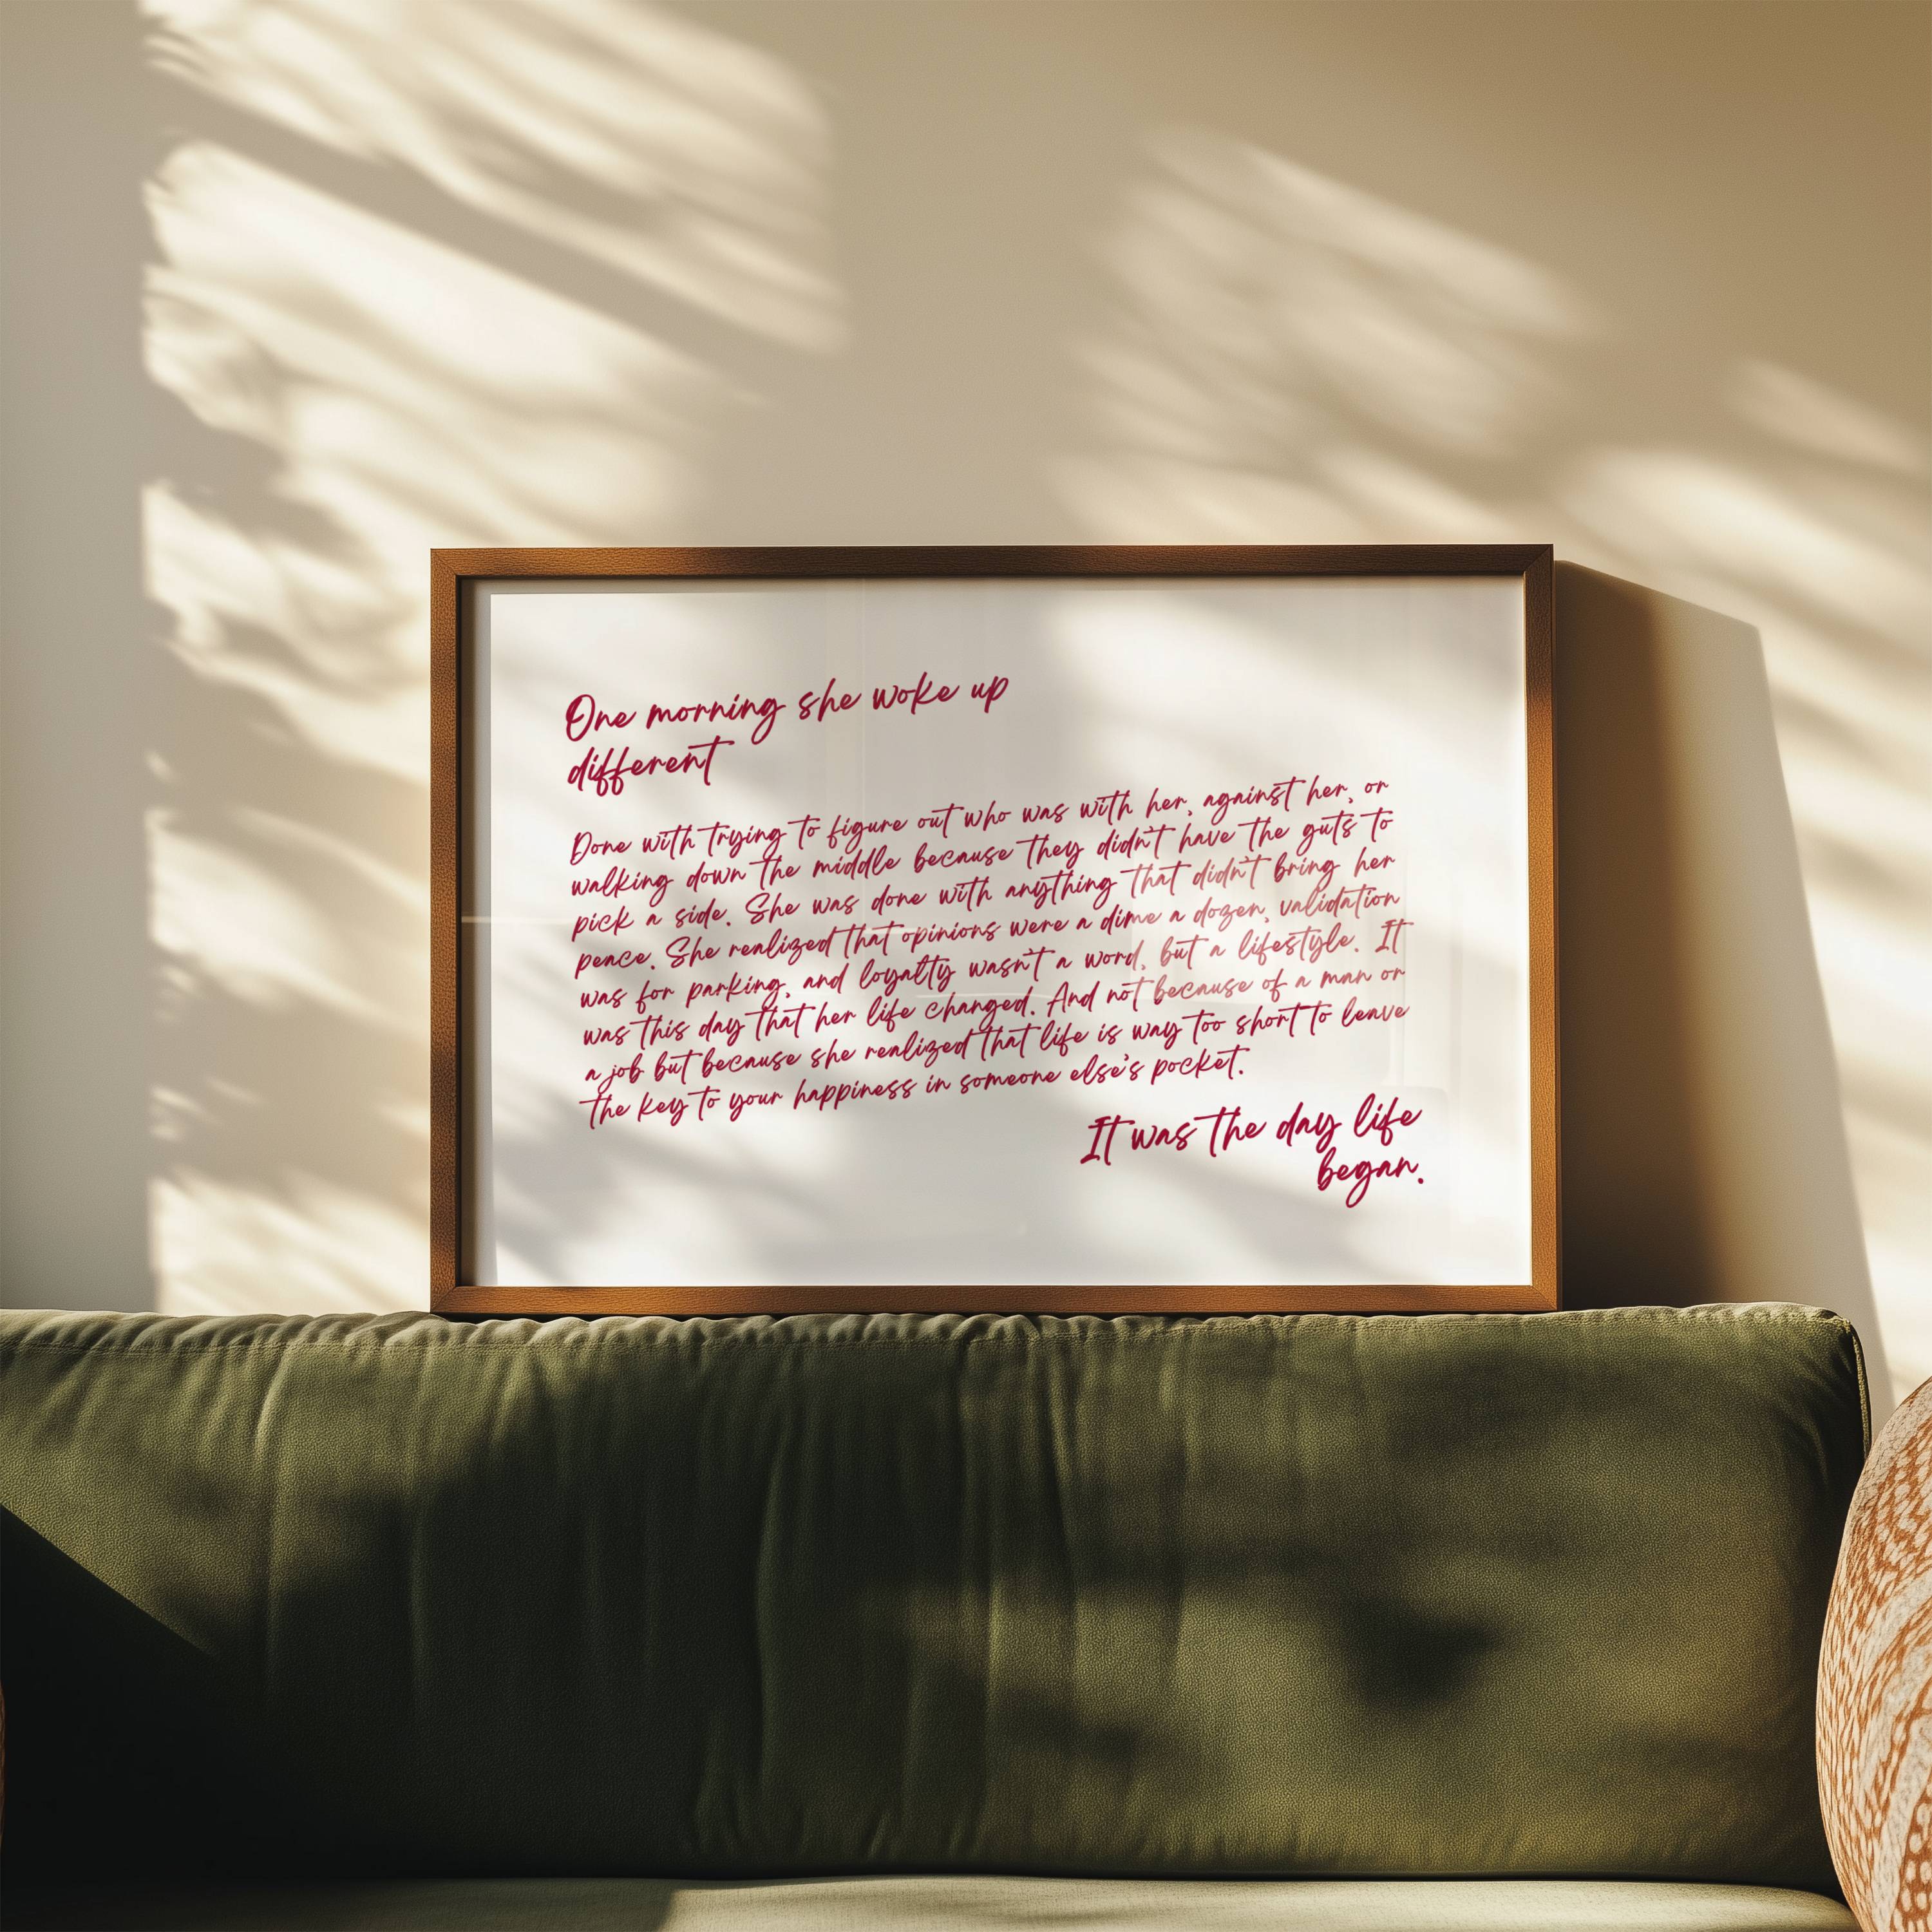 One morning she woke up
different
Done with trying to figure out who was with her, against her, or
walking down the middle because they didn't have the guts to
pick a side. She was done with anything that didn't bring her
peace. She realized that opinions were a dime a dozen, validation
was for parking, and loyalty wasn't a word, but a lifestyle. It
was this day that her life changed. And not because of a man or
a job but because she realized that life is way too short to leave
the key to your happiness in someone else's pocket.
It was the day life
began.